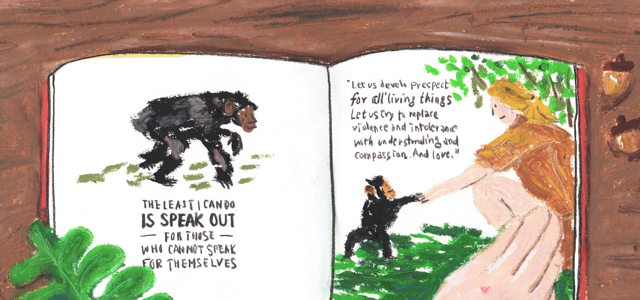 THE LEAST I CAN DO
IS SPEAK OUT
— FOR THOSE —
WHO CANNOT SPEAK
FOR THEMSELVES
"Let us develo prespect
for all living things
Let us try to replace
violence and intolerance
with understanding and
compassion. And love."